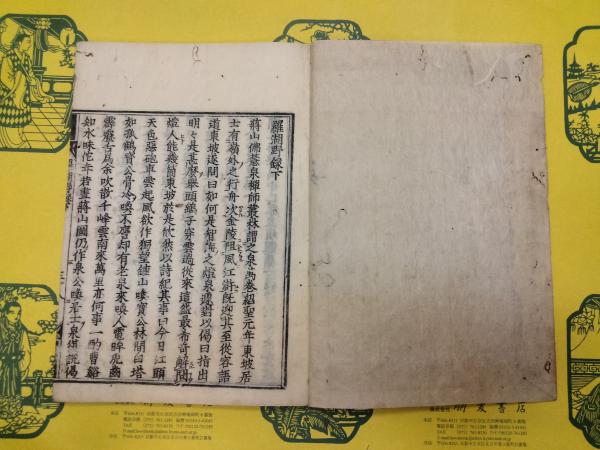 羅湖野録下
蔣山佛慧泉禪師叢林謂之泉萬卷紹聖元年東坡居
士有嶺外之行舟次金陵阻風江滸旣迎其至從容語
道東坡遂問曰如何是智海之燈泉遽對以偈曰指出
明明是甚麼擧頭鷂子穿雲過從來這盌最希奇解問
燈人能幾箇東坡於是欣然以詩紀其事曰今日江頭
天色惡砲車雲起風欲作獨望鍾山喚寶公林間白塔
如孤鶴寶公骨冷喚不應却有老泉來喚人電眸虎齒
霹靂舌爲余吹散千峰雲南來萬里亦何事一酌曹谿
知水味他年若畫蔣山圖仍作泉公喚居士泉復說偈
朋友書店